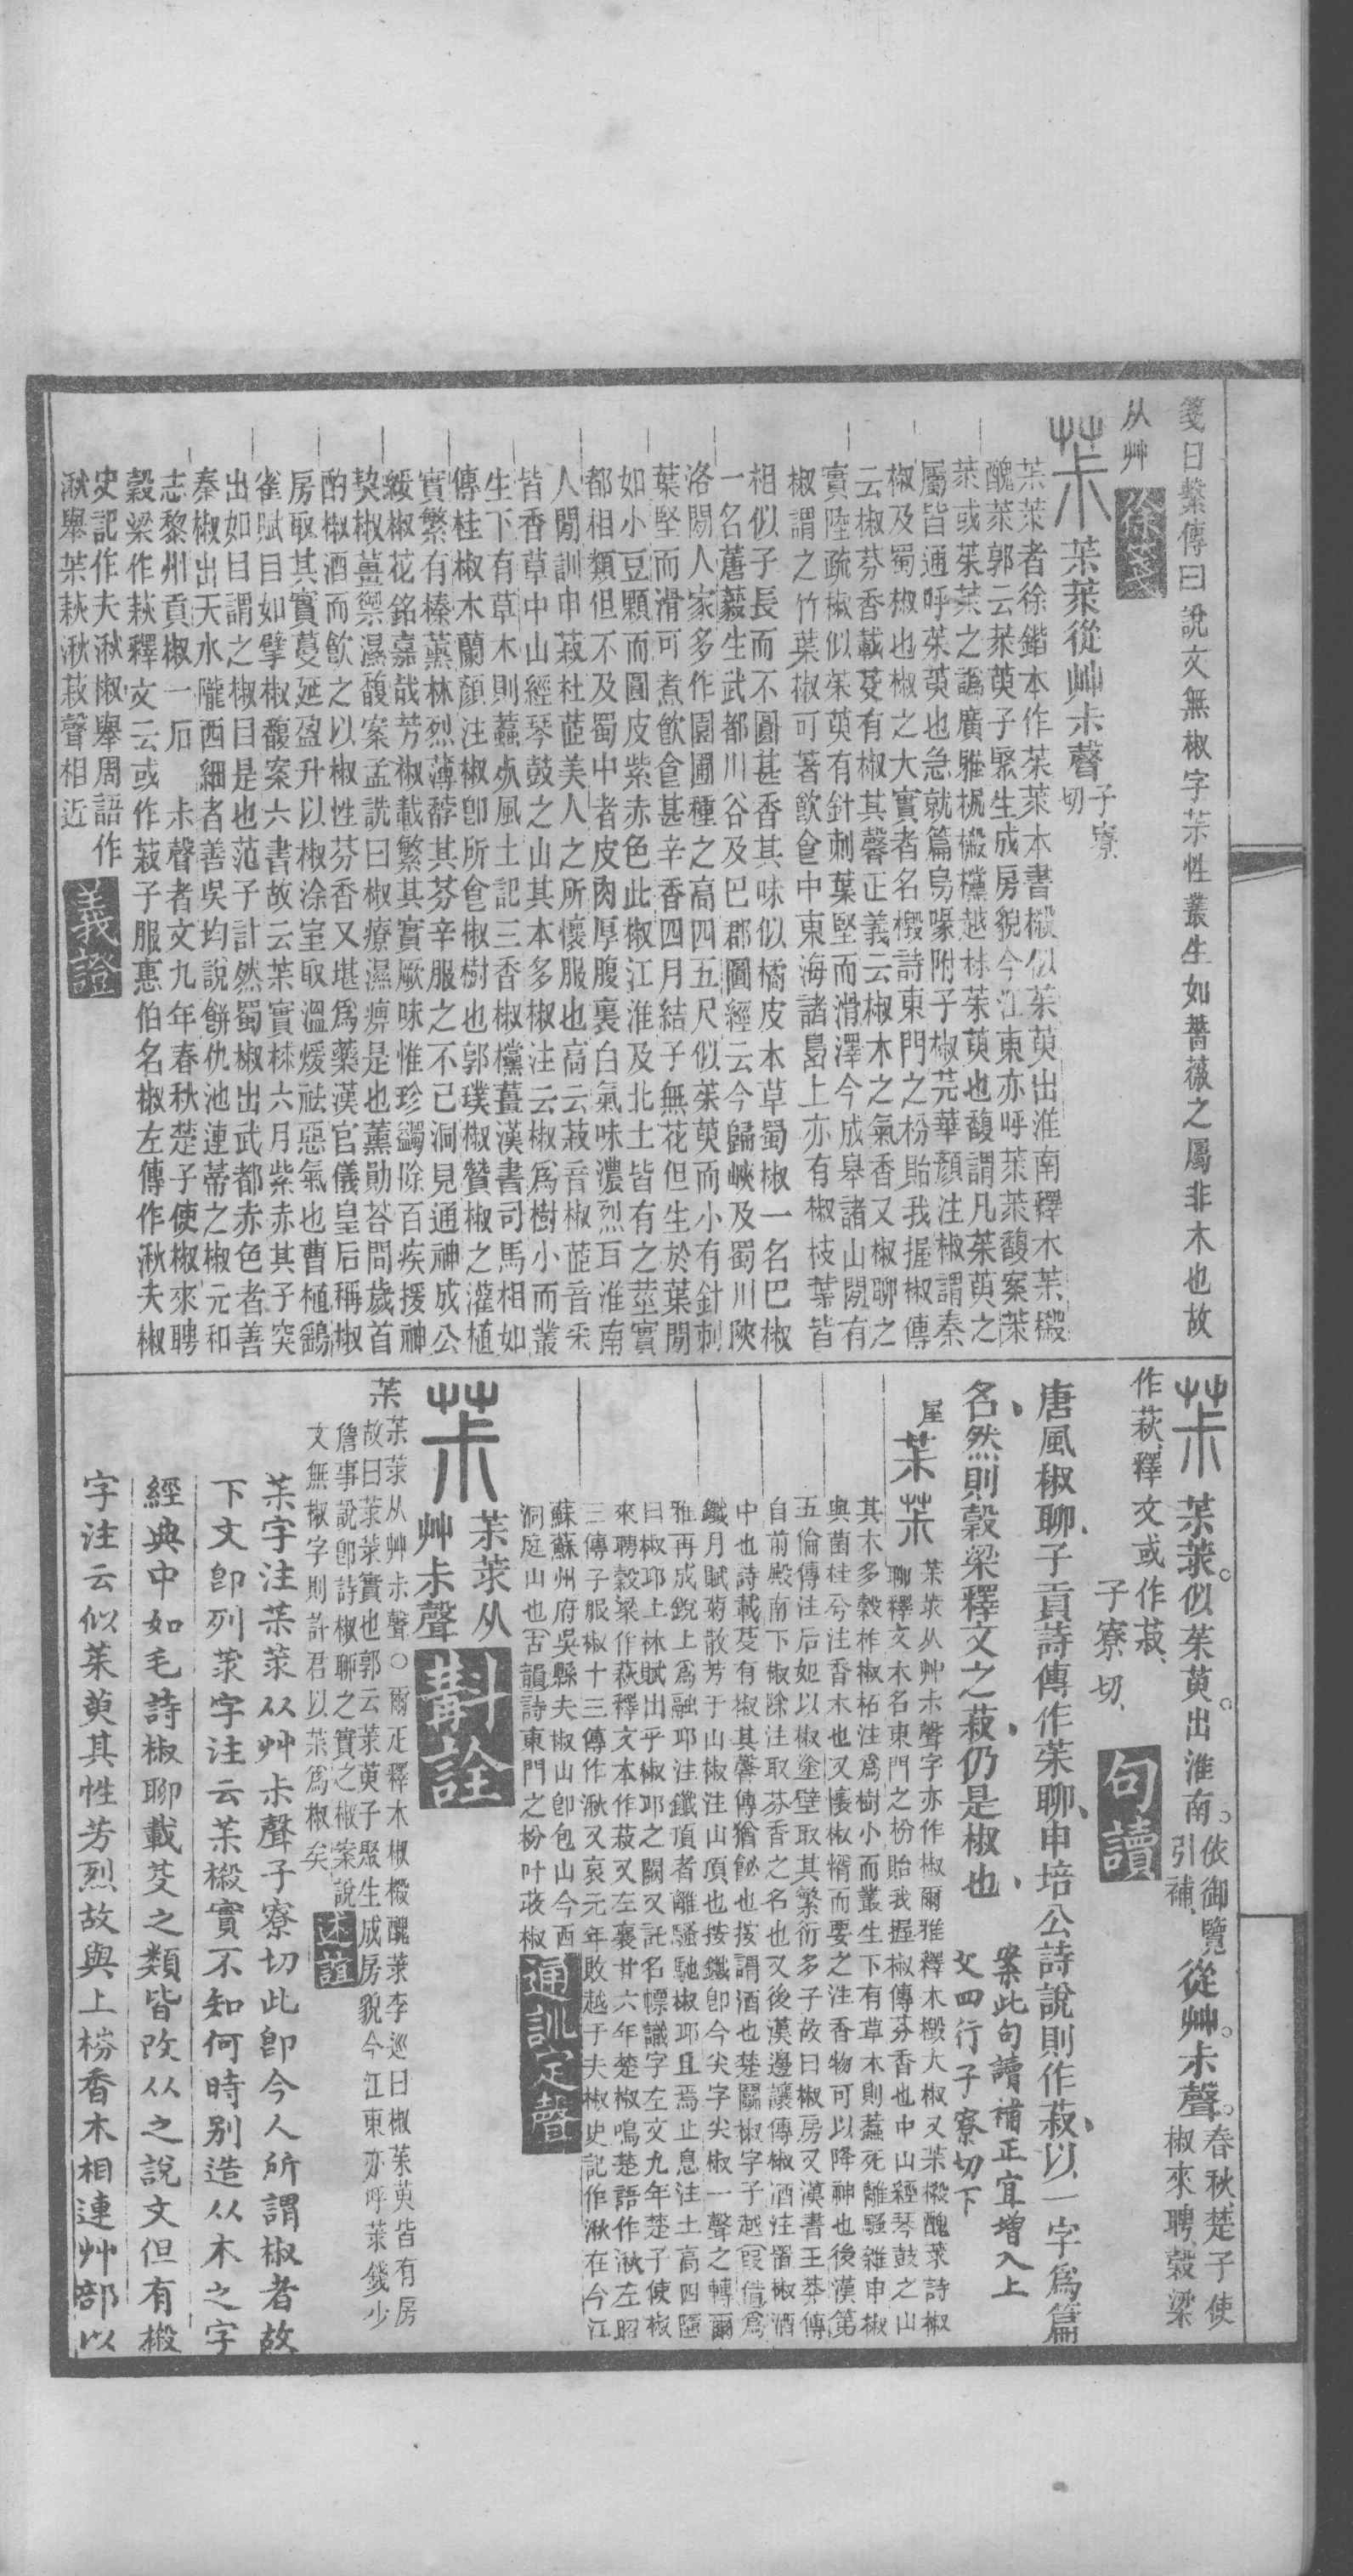 箋曰繫傳曰說文無椒字茮性叢生如薔薇之屬非木也故
从艸
徐箋
茮
茮莍從艸尗聲子寮切
茮莍者徐鍇本作茮莍本書樧似茱萸出淮南釋木茮樧
醜莍郭云莍萸子聚生成房貌今江東亦呼莍茮馥案茱
莍或茱茮之譌廣雅梔樧欓越椒茱萸也馥謂凡茱萸之
屬皆通呼茱萸也急就篇烏喙附子椒芫華顏注椒謂秦
椒及蜀椒也椒之大實者名樧詩東門之枌貽我握椒傳
云椒芬香載芟有椒其馨正義云椒木之氣香又椒聊之
實陸疏椒似茱萸有針刺葉堅而滑澤今成皋諸山閒有
椒謂之竹葉椒可著飲食中東海諸島上亦有椒枝葉皆
相似子長而不圓甚香其味似橘皮本草蜀椒一名巴椒
一名蓎藙生武都川谷及巴郡圖經云今歸峽及蜀川陝
洛閒人家多作園圃種之高四五尺似茱萸而小有針刺
葉堅而滑可煮飲食甚辛香四月結子無花但生於葉閒
如小豆顆而圓皮紫赤色此椒江淮及北土皆有之莖實
都相類但不及蜀中者皮肉厚腹裏白氣味濃烈耳淮南
人閒訓申菽杜茝美人之所懷服也高云菽音椒茝音采
皆香草中山經琴鼓之山其本多椒注云椒爲樹小而叢
生下有草木則蠚𣦸風土記三香椒欓薑漢書司馬相如
傳桂椒木蘭顏注椒卽所食椒樹也郭璞椒贊椒之灌植
實繁有榛薰林烈薄馞其芬辛服之不已洞見通神成公
綏椒花銘嘉哉芳椒載繁其實厥味惟珍蠲除百疾援神
契椒薑禦濕馥案孟詵曰椒療濕痹是也薰勛荅問歲首
酌椒酒而飲之以椒性芬香又堪爲藥漢官儀皇后稱椒
房取其實蔓延盈升以椒涂室取溫煖祛惡氣也曹植鷂
雀賦目如擘椒馥案六書故云茮實椒六月紫赤其子突
出如目謂之椒目是也范子計然蜀椒出武都赤色者善
秦椒出天水隴西細者善吳均說餅仇池連蔕之椒元和
志黎州貢椒一石　尗聲者文九年春秋楚子使椒來聘
穀梁作萩釋文云或作菽子服惠伯名椒左傳作湫夫椒
史記作夫湫椒舉周語作
湫舉茮萩湫菽聲相近
義證
茮
茮莍似茱萸出淮南依御覽引補從艸尗聲春秋楚子使椒來聘穀梁
作萩釋文或作菽
子寮切
句讀
唐風椒聊子貢詩傳作茱聊申培公詩說則作菽以一字爲篇
名然則穀梁釋文之菽仍是椒也
案此句讀補正宜增入上
文四行子寮切下
屋茮茮
茮莍从艸尗聲字亦作椒爾雅釋木樧大椒又茮樧醜莍詩椒
聊釋文木名東門之枌貽我握椒傳芬香也中山經琴鼓之山
其木多穀柞椒柘注爲樹小而叢生下有草木則蠚死離騷雜申椒
與菌桂兮注香木也又懷椒糈而要之注香物可以降神也後漢第
五倫傳注后妃以椒塗壁取其繁衍多子故曰椒房又漢書王莽傳
自前殿南下椒除注取芬香之名也又後漢邊讓傳椒酒注置椒酒
中也詩載芟有椒其馨傳猶飶也按謂酒也楚鬬椒字子越假借爲
鐵月賦菊散芳于山椒注山頂也按鐵卽今尖字尖椒一聲之轉爾
雅再成銳上爲融邱注鐵頂者離騷馳椒邱且焉止息注土高四墮
曰椒邱上林賦出乎椒邱之闕又託名幖識字左文九年楚子使椒
來聘穀梁作萩釋文本作菽又左襄廿六年楚椒鳴楚語作湫左昭
三傳子服椒十三傳作湫又哀元年敗越于夫椒史記作湫在今江
蘇蘇州府吳縣夫椒山卽包山今西
洞庭山也古韻詩東門之枌叶荍椒
通訓定聲
茮
茮莍从
艸尗聲
斠詮
茮
茮莍从艸尗聲○爾疋釋木椒樧醜莍李巡曰椒茱萸皆有房
故曰莍莍實也郭云莍萸子聚生成房貌今江東亦呼莍錢少
詹事說卽詩椒聊之實之椒案說
文無椒字則許君以茮爲椒矣
述誼
茮字注茮莍从艸尗聲子寮切此卽今人所謂椒者故
下文卽列莍字注云茮樧實不知何時別造从木之字
經典中如毛詩椒聊載芟之類皆改从之說文但有樧
字注云似茱萸其性芳烈故與上椋香木相連艸部以